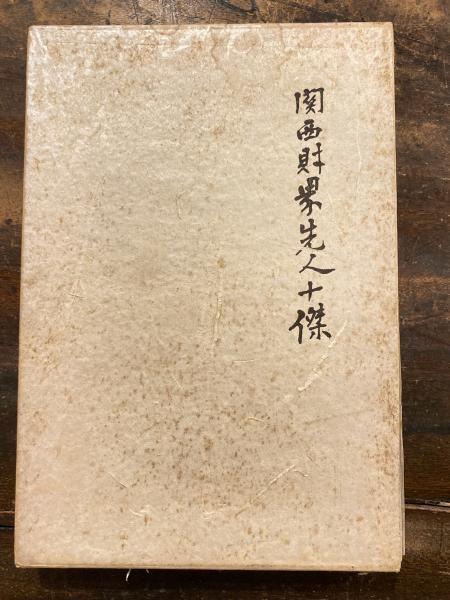 関西財界先人十傑